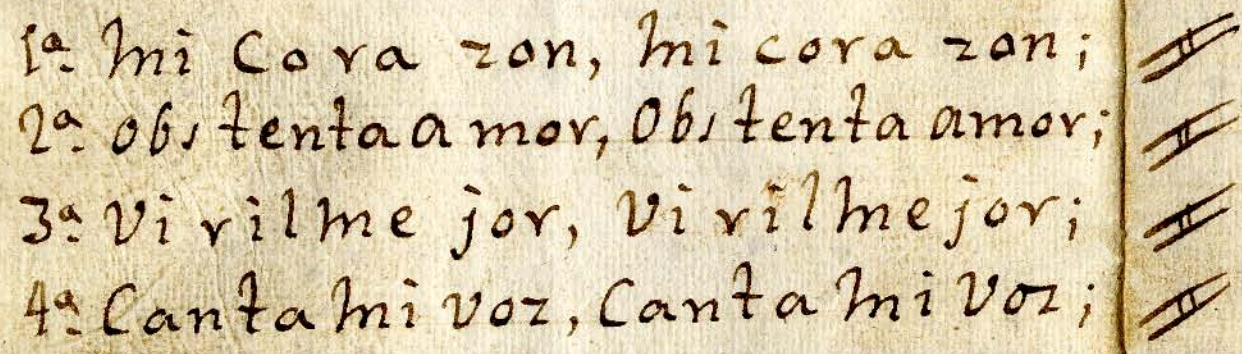 1ª. Mi Cora zon, Mi cora zon;
2ª. Obstenta amor, Obstenta amor;
3ª. Viril me jor, Viril mejor;
4ª. Canta Mi voz, Canta Mi Voz;